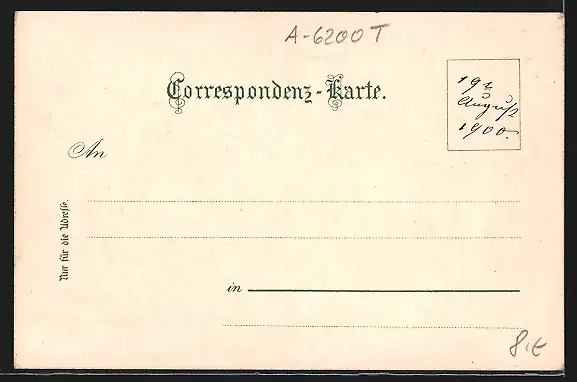 A-6200T
Correspondenz-Karte.
19t
August
1900.
An
Nur für die Adresse.
in
8.€